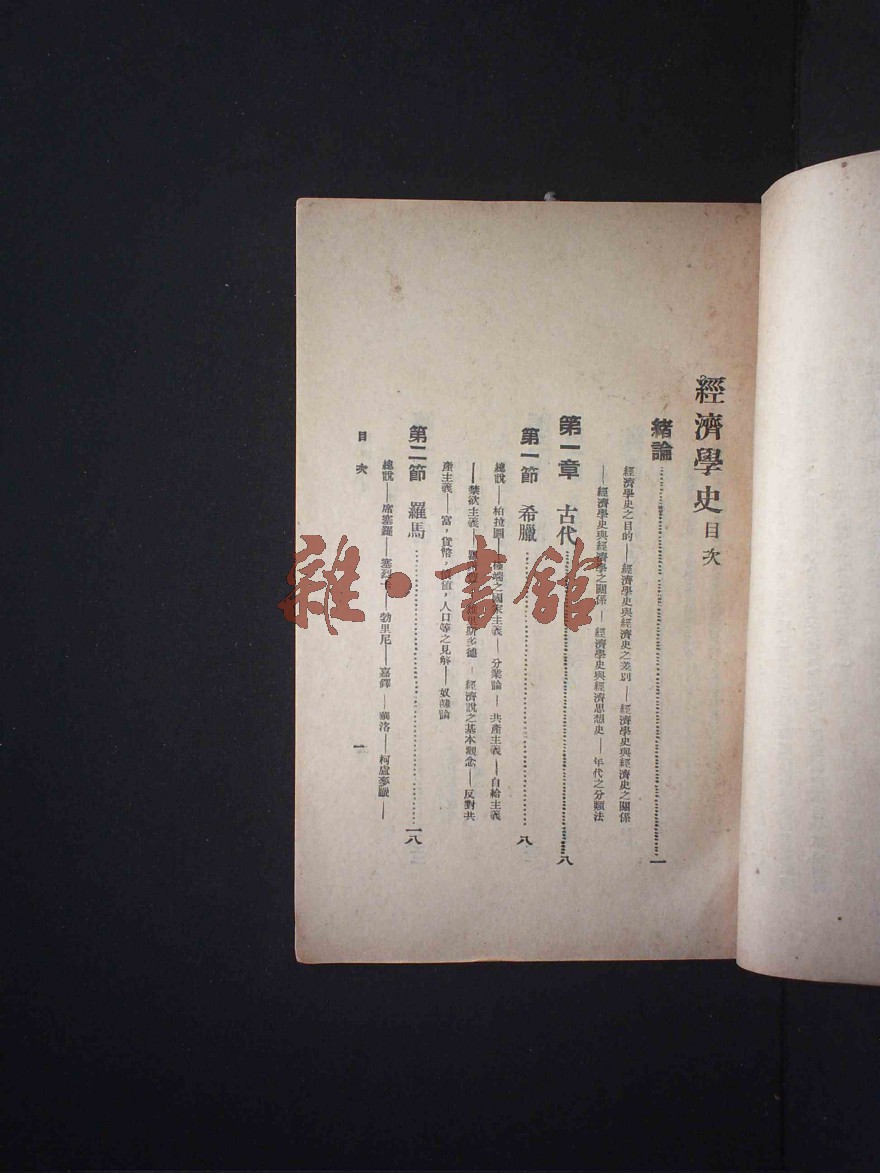 經濟學史目次
緒論……一
經濟學史之目的——經濟學史與經濟史之差別——經濟學史與經濟史之關係
——經濟學史與經濟學之關係——經濟學史與經濟思想史——年代之分類法
第一章 古代……八
第一節 希臘……八
總說——柏拉圖——極端之國家主義——分業論——共產主義——自給主義
——禁欲主義——斯多德——經濟說之基本觀念——反對共
產主義——富，貨幣，價值，人口等之見解——奴隸論
第二節 羅馬……一八
總說——席塞羅——塞烈卡——勃里尼——嘉鐸——洛——柯盧麥臘——
目次
一
雜·書館